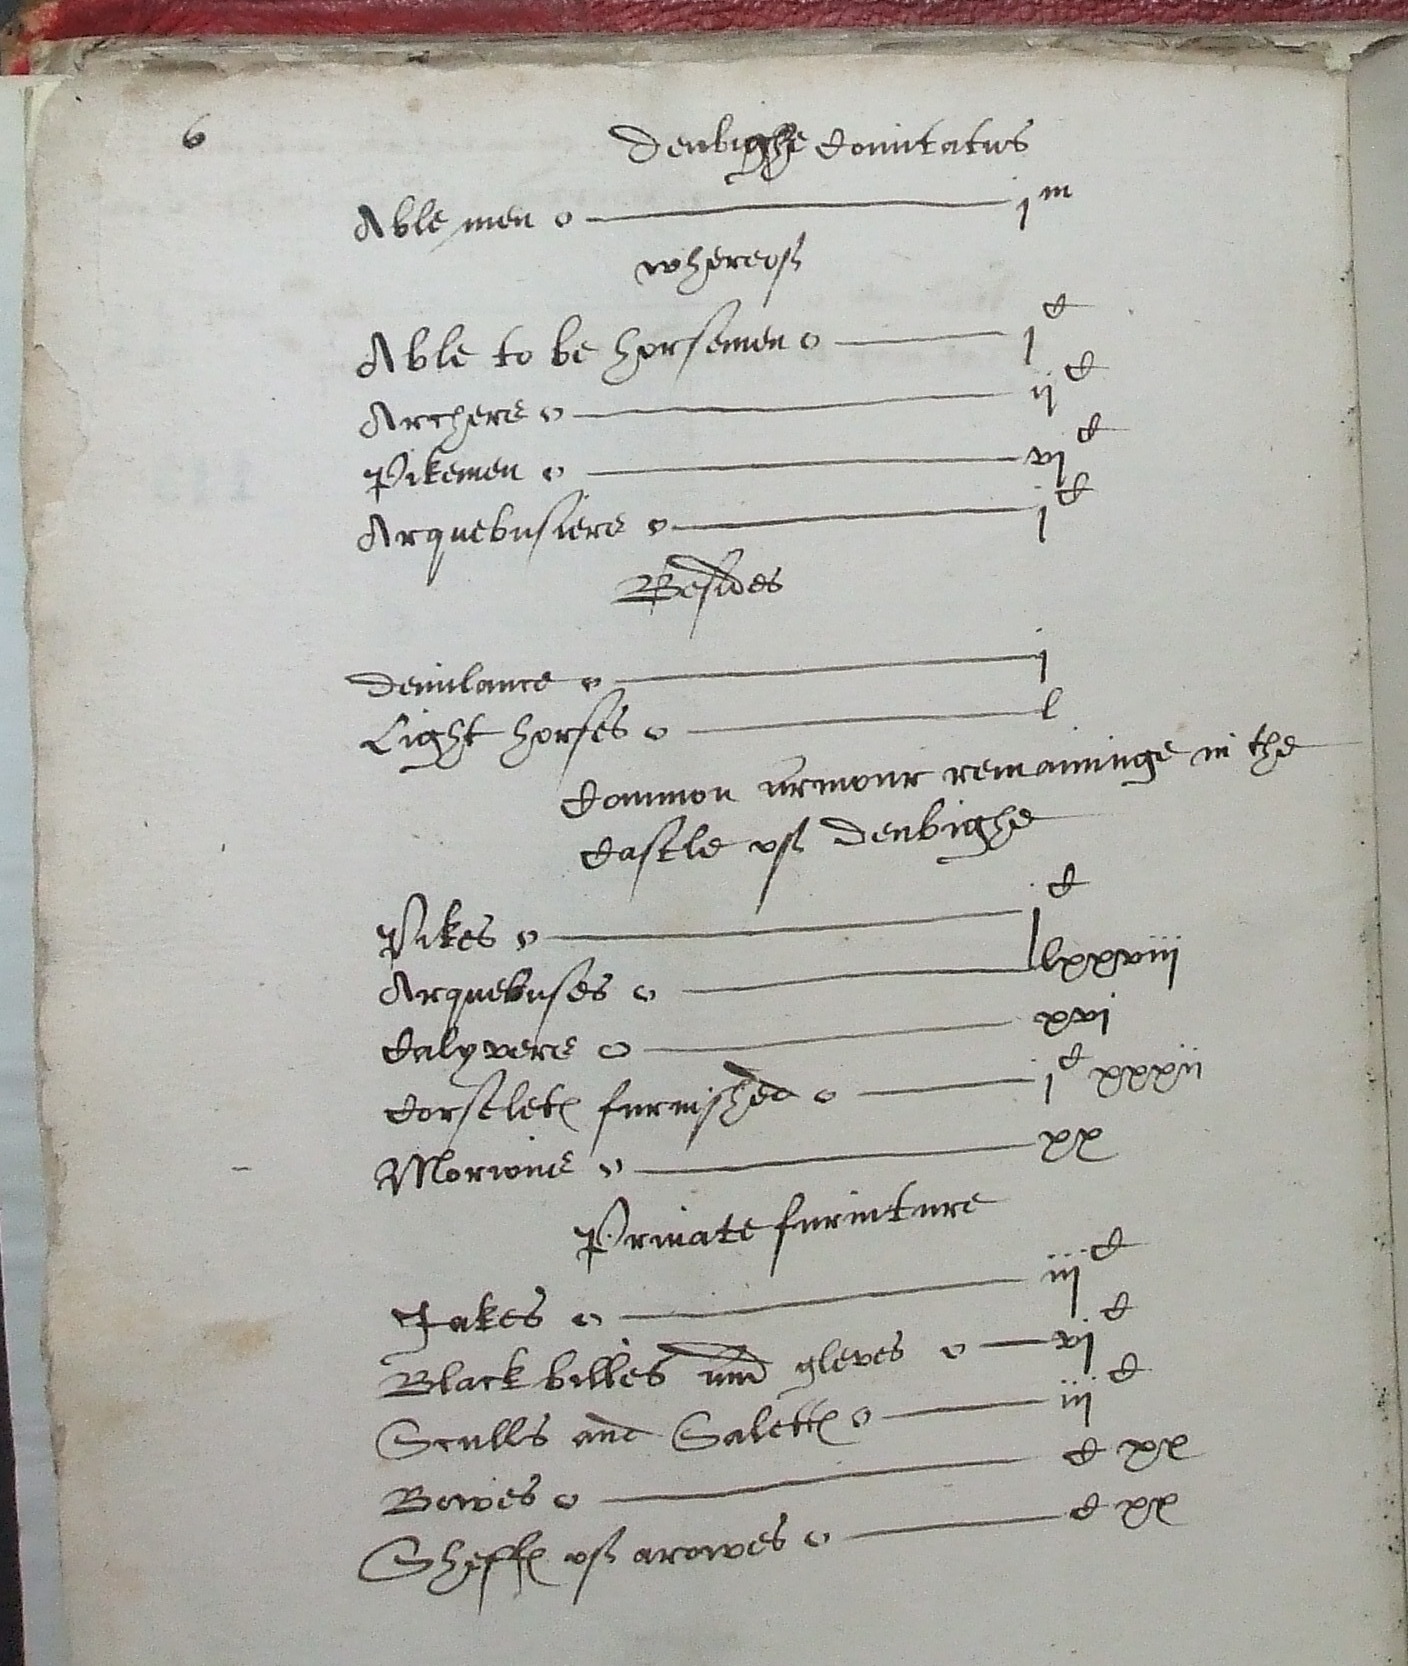 6
Denbighe Comitatus
Able men o j m
whereof
Able to be horsemen o j C
Archers o ij C
Pikemen o vj C
Arquebusiers o j C
Besides
Demilance o j
Light horses o l
Common armour remaininge in the
Castle of Denbighe
Pikes o j C
Arquebuses o lxxviij
Calyvers o xvj
Corselets furnished o j C xxxij
Morions o xx
Private furniture
Jakes o iij C
Black billes and gleves o vj C
Sculls and Saletts o iij C
Bowes o C xx
Sheffes of arowes o C xx